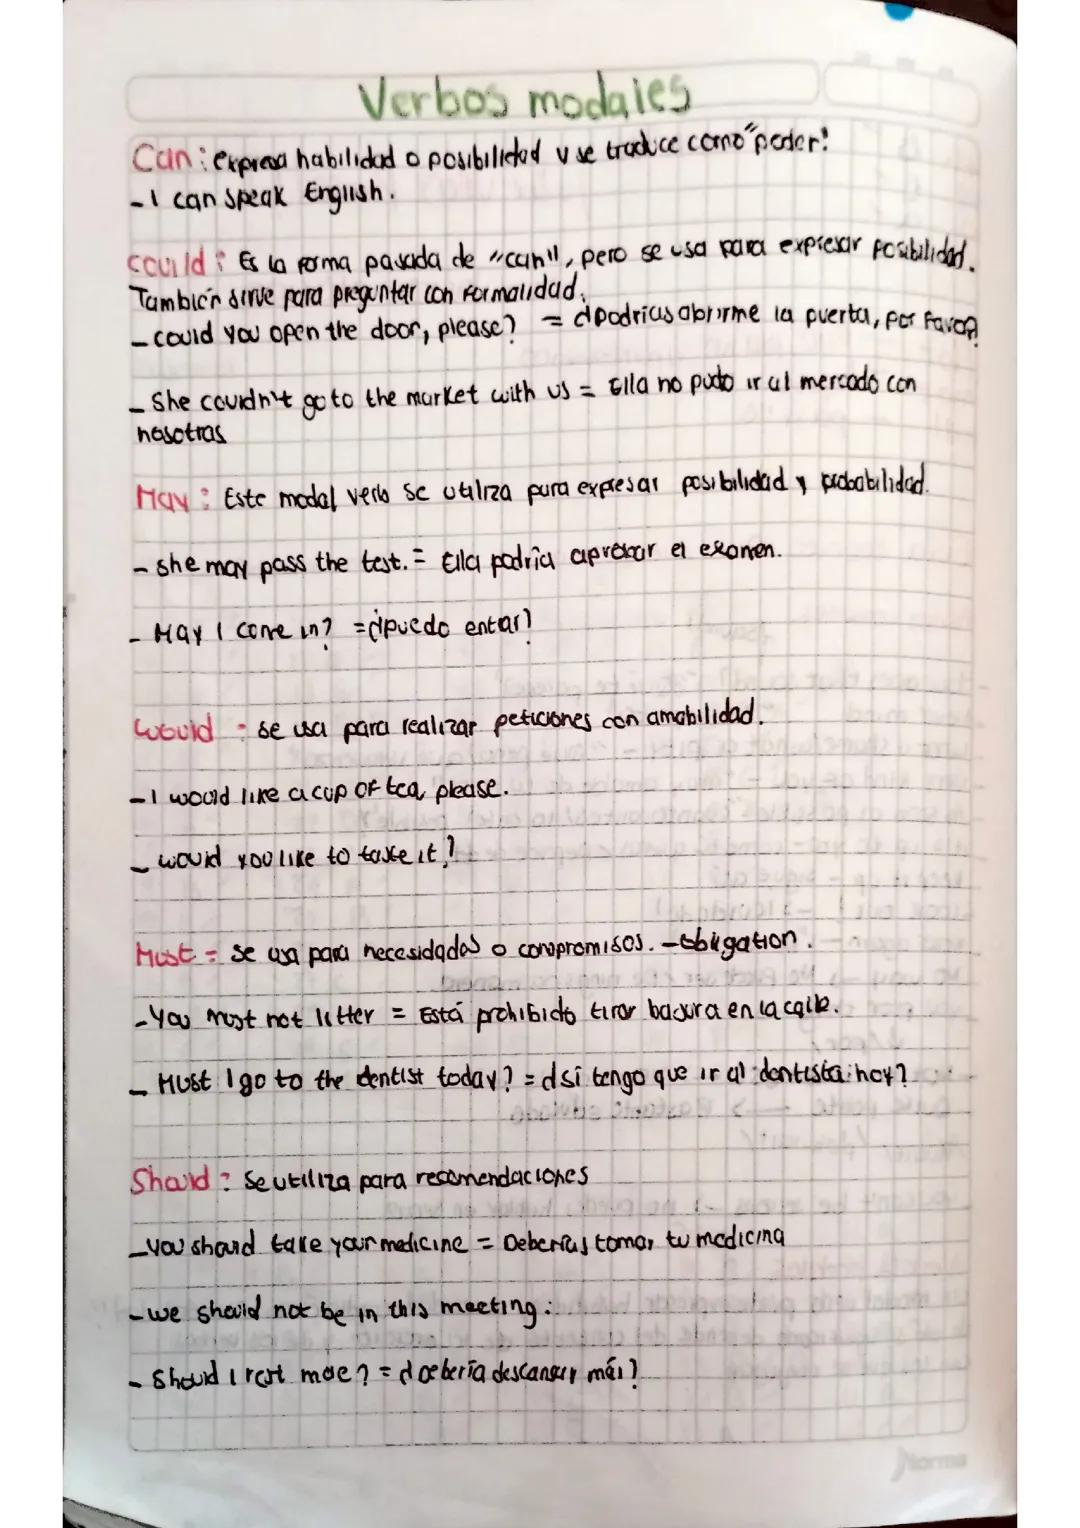 Verbos modales
Can: expresa habilidad o posibilidad y se traduce como "poder".
- I can speak English.
Could: Es la forma pasada de "can", pero se usa para expresar posibilidad.
También sirve para preguntar con formalidad.
- Could you open the door, please? = ¿podrías abrirme la puerta, por favor?
- She couldn't go to the market with us = Ella no pudo ir al mercado con
nosotras
May: Este modal verb se utiliza para expresar posibilidad y probabilidad.
- She may pass the test. = Ella podría aprobar el examen.
- May I come in? = ¿puedo entrar?
Would - se usa para realizar peticiones con amabilidad.
- I would like a cup of tea, please.
- would you like to taste it?
Must = se usa para necesidades o compromisos. - obligation.
- You must not litter = Está prohibido tirar basura en la calle.
- Must I go to the dentist today? = ¿sí tengo que ir al dentista hoy?
Should: Se utiliza para recomendaciones
- You should take your medicine = Deberías tomar tu medicina
- we should not be in this meeting.
- Should I rest more? = ¿debería descansar más?
Norma